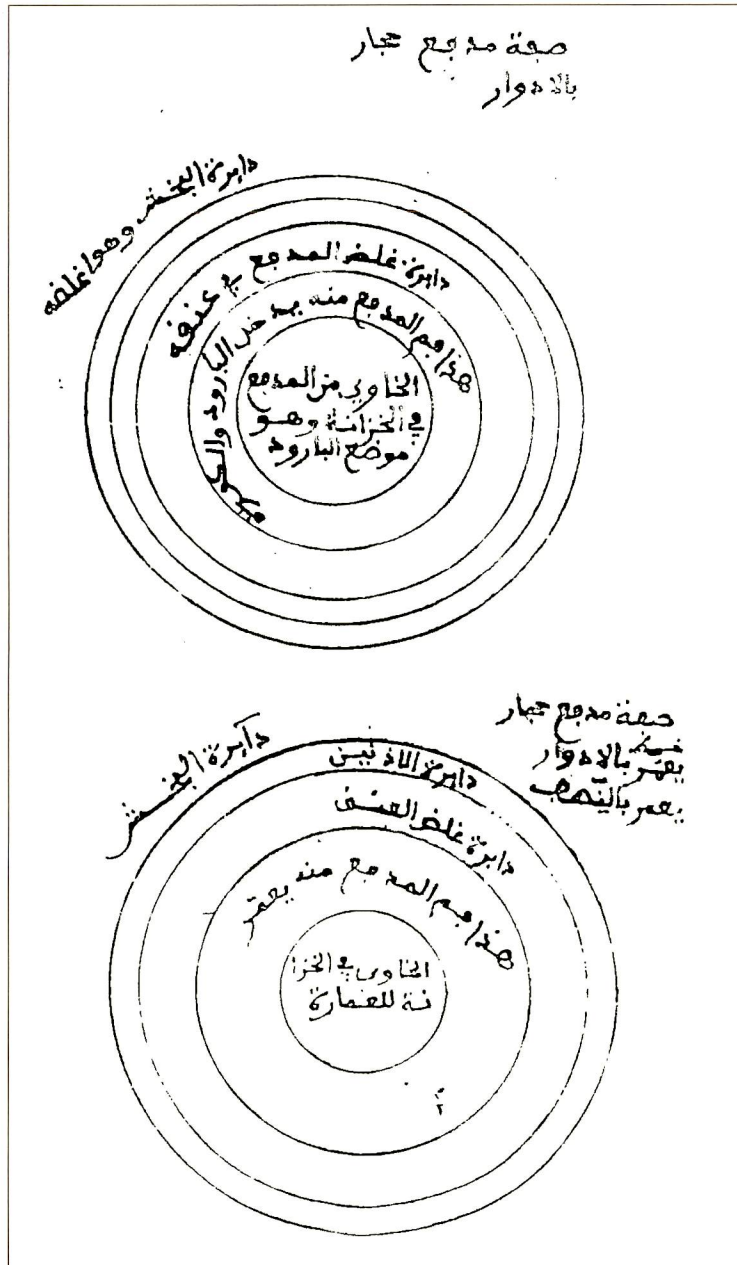 صفة مدفع حجار
بالادوار
دايرة الفخش وهو اغلضه
دايرة غلض المدفع في عنفه
هذا فم المدفع منه يدخل البارود والكور
الخاوي من المدفع
في الخزانة وهو
موضع البارود
صفة مدفع حجار
يعمر بالادوار
يعمر بالنصف
دايرة الفخش
دايرة الاذنين
دايرة غلض العنف
هذا فم المدفع منه يعمر
الخاوي في الخزا
نة للعمارة